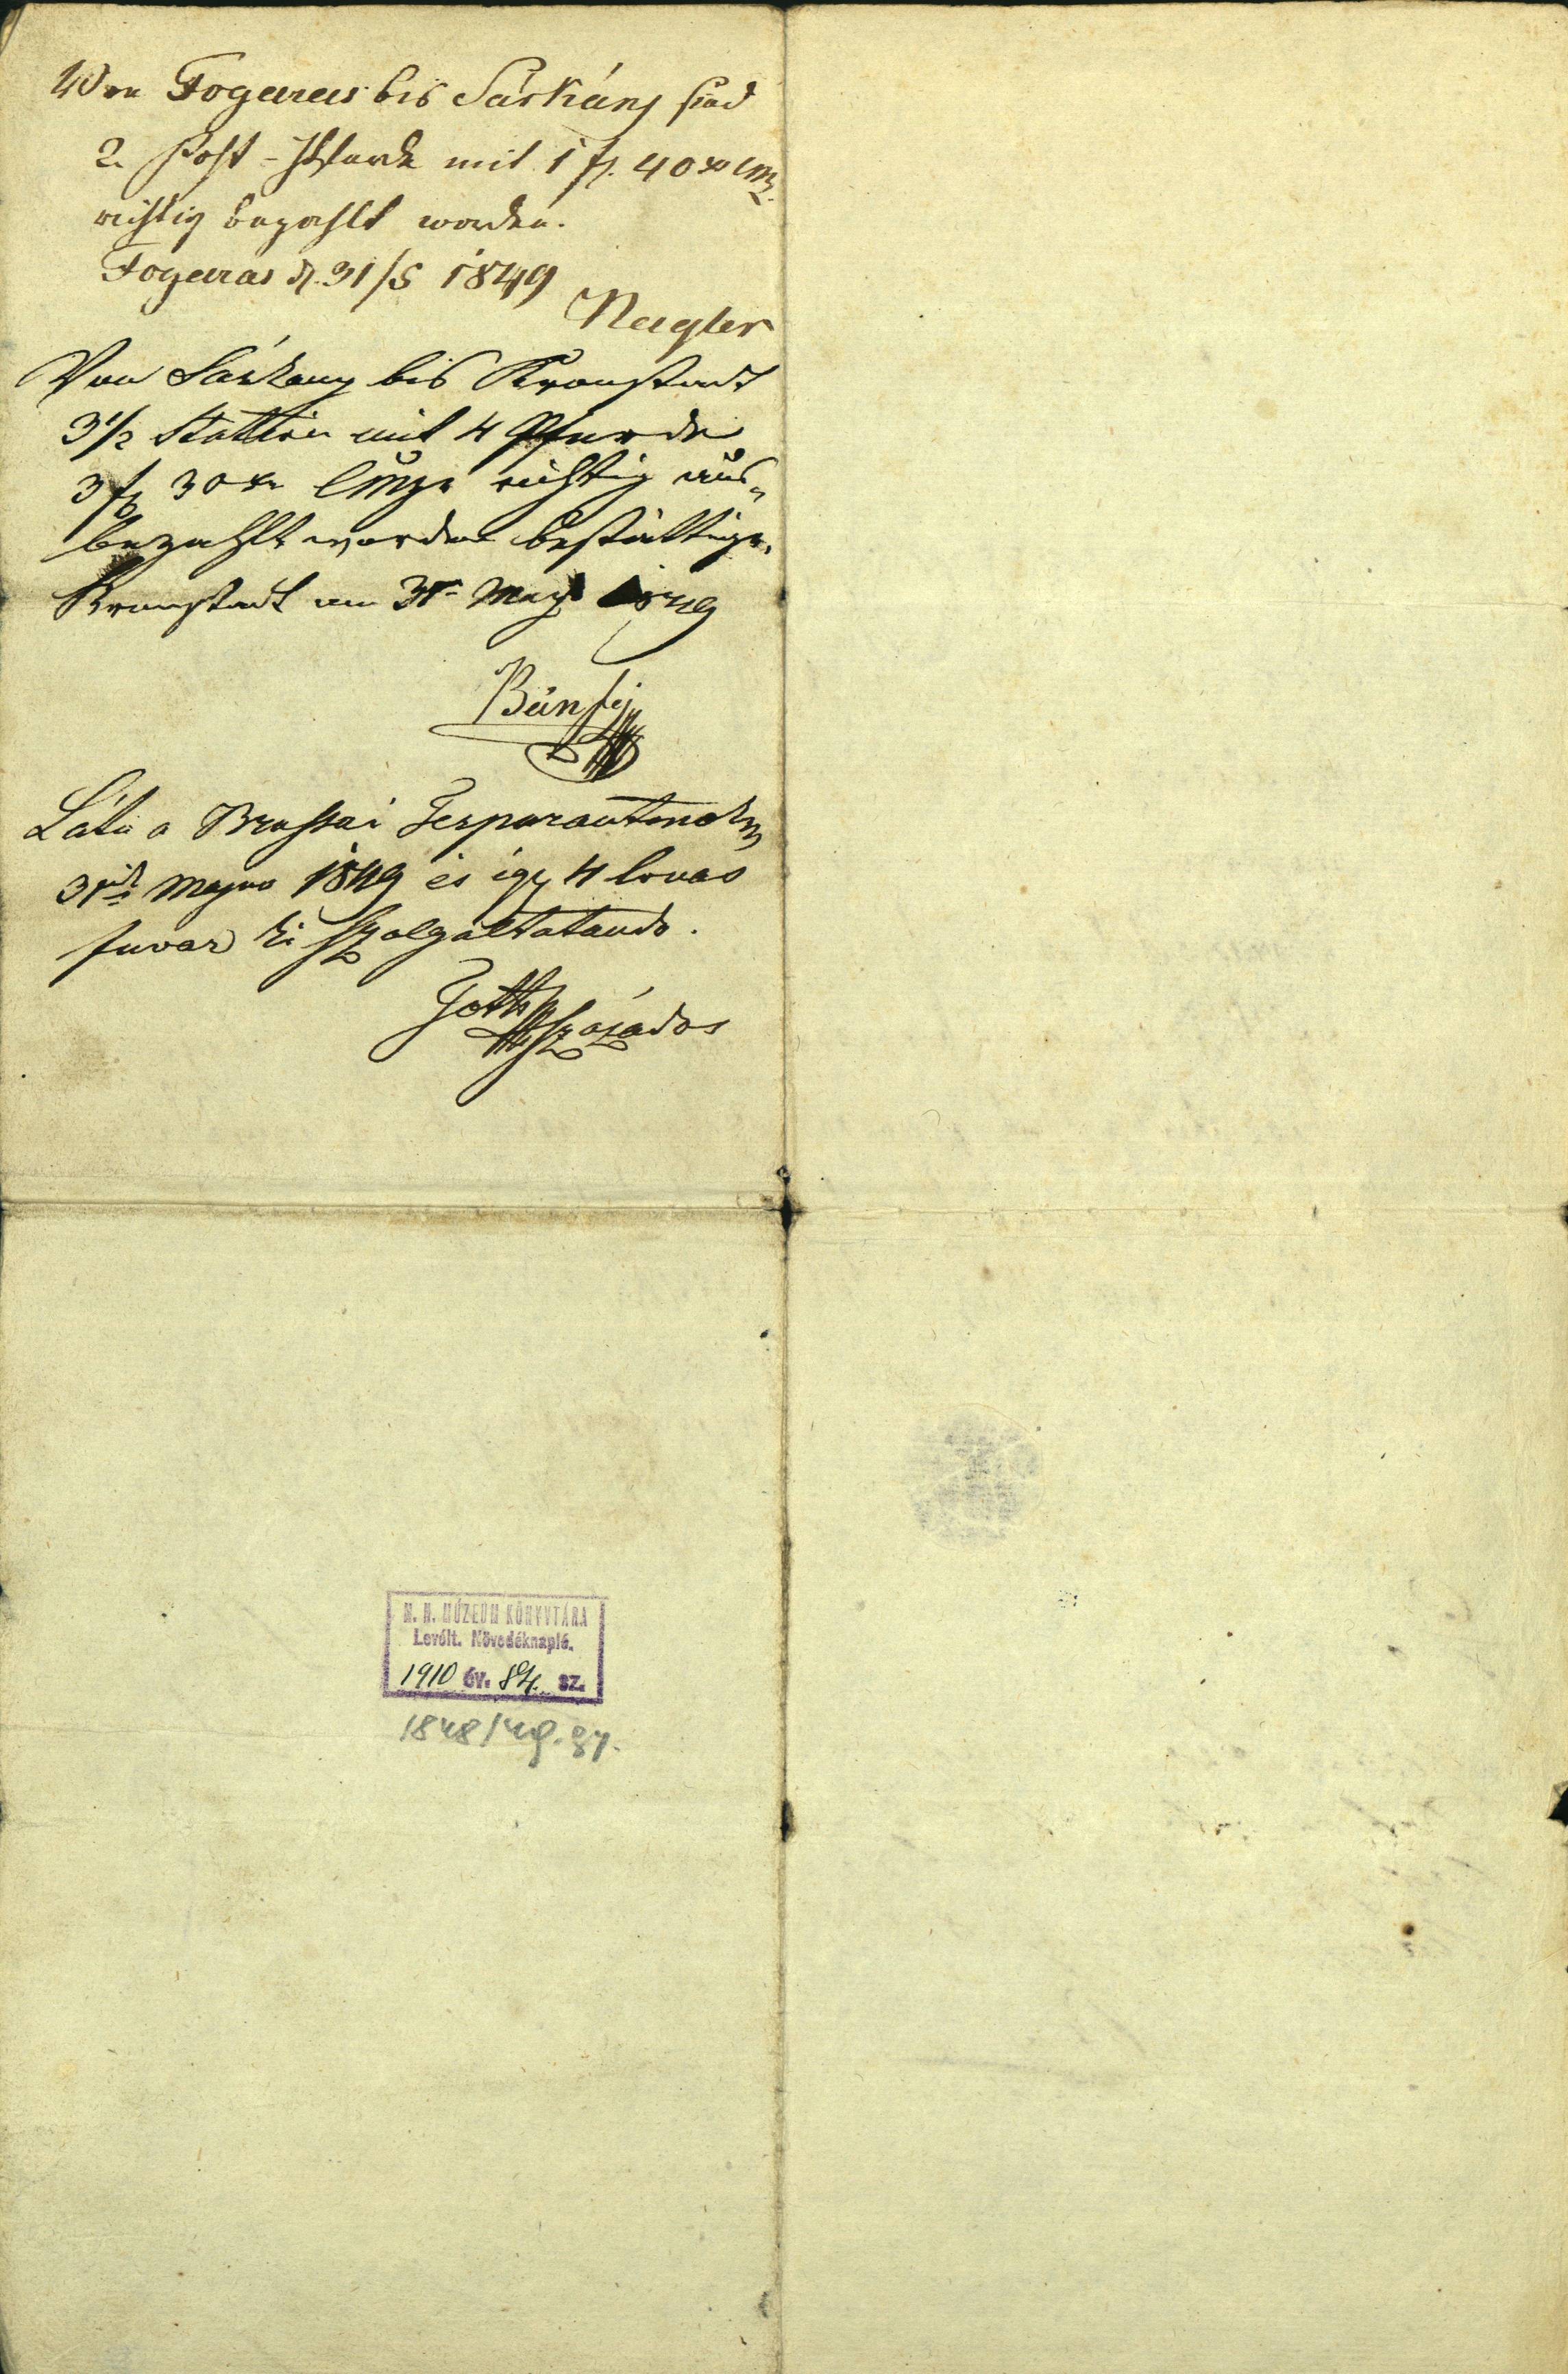 Von Fogaras bis Sárkány sind
2 Post-Pferde mit 1 f. 40 xr CM.
richtig bezahlt worden.
Fogaras d. 31/5 1849
Nagler
Von Sárkany bis Kronstadt
3 1/2 Station mit 4 Pferde
3 f 30 xr CMze richtig aus-
bezahlt worden bestättige.
Kronstadt am 31n May 1849
Bánfi
Láta a Brassai
31ik Majus 1849 és igy 4 lovas
fuvar ki szolgáltatando.
Gotts százados
M. N. MÚZEUM KÖNYVTÁRA
Levélt. Növedéknapló.
1910 év. 84. sz.
1848/49. 87.